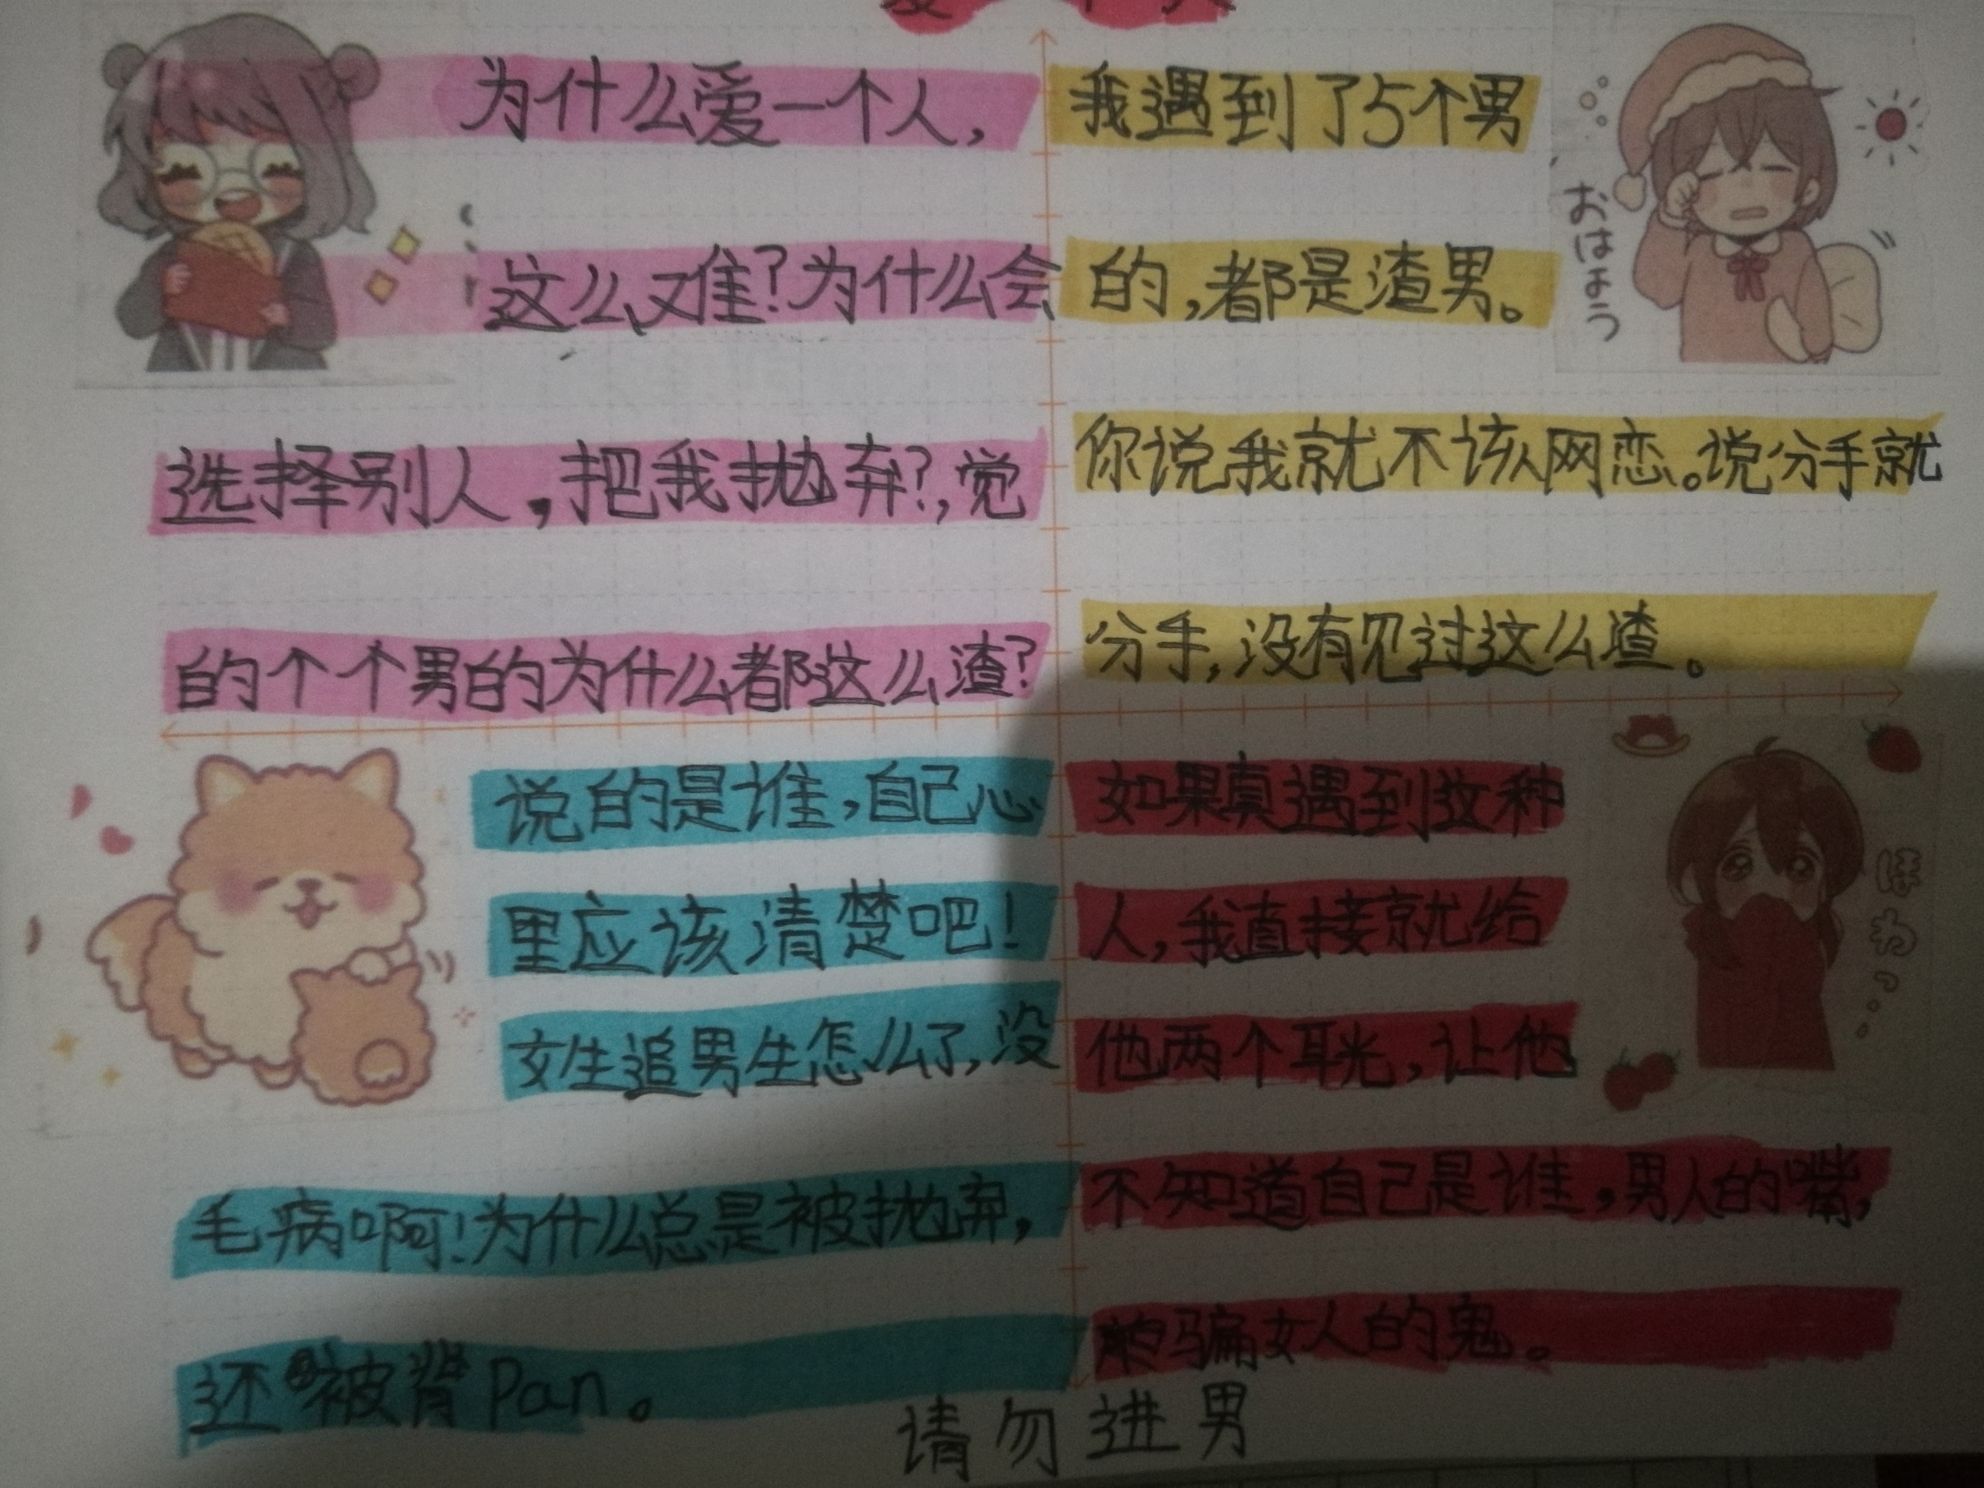 为什么爱一个人，
这么难？为什么会
选择别人，把我抛弃？，觉
的个个男的为什么都这么渣？
我遇到了5个男
的，都是渣男。
你说我就不该网恋。说分手就
分手，没有见过这么渣。
おはよう
说的是谁，自己心
里应该清楚吧！
女生追男生怎么了，没
毛病啊！为什么总是被抛弃，
还被背pan。
如果真遇到这种
人，我直接就给
他两个耳光，让他
不知道自己是谁，男人的嘴，
骗女人的鬼。
ほわっ
请勿进男